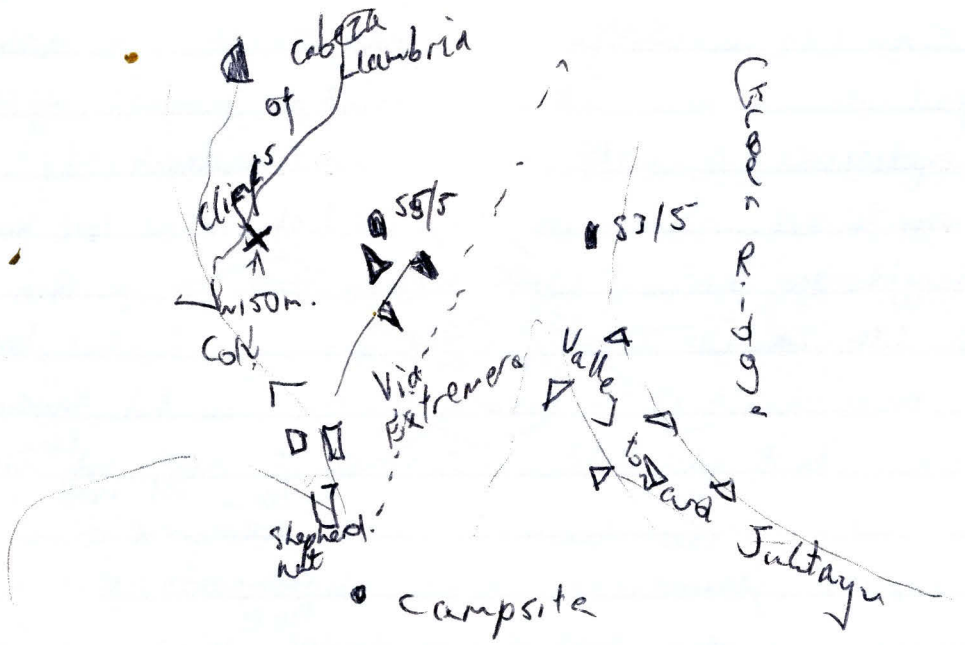 Cabeza
Llambria
of
Cliffs
55/5
53/5
Green Ridge
150m.
Col
Via
Extremera
Valley
toward
Jultayu
Shepherd
hut
Campsite